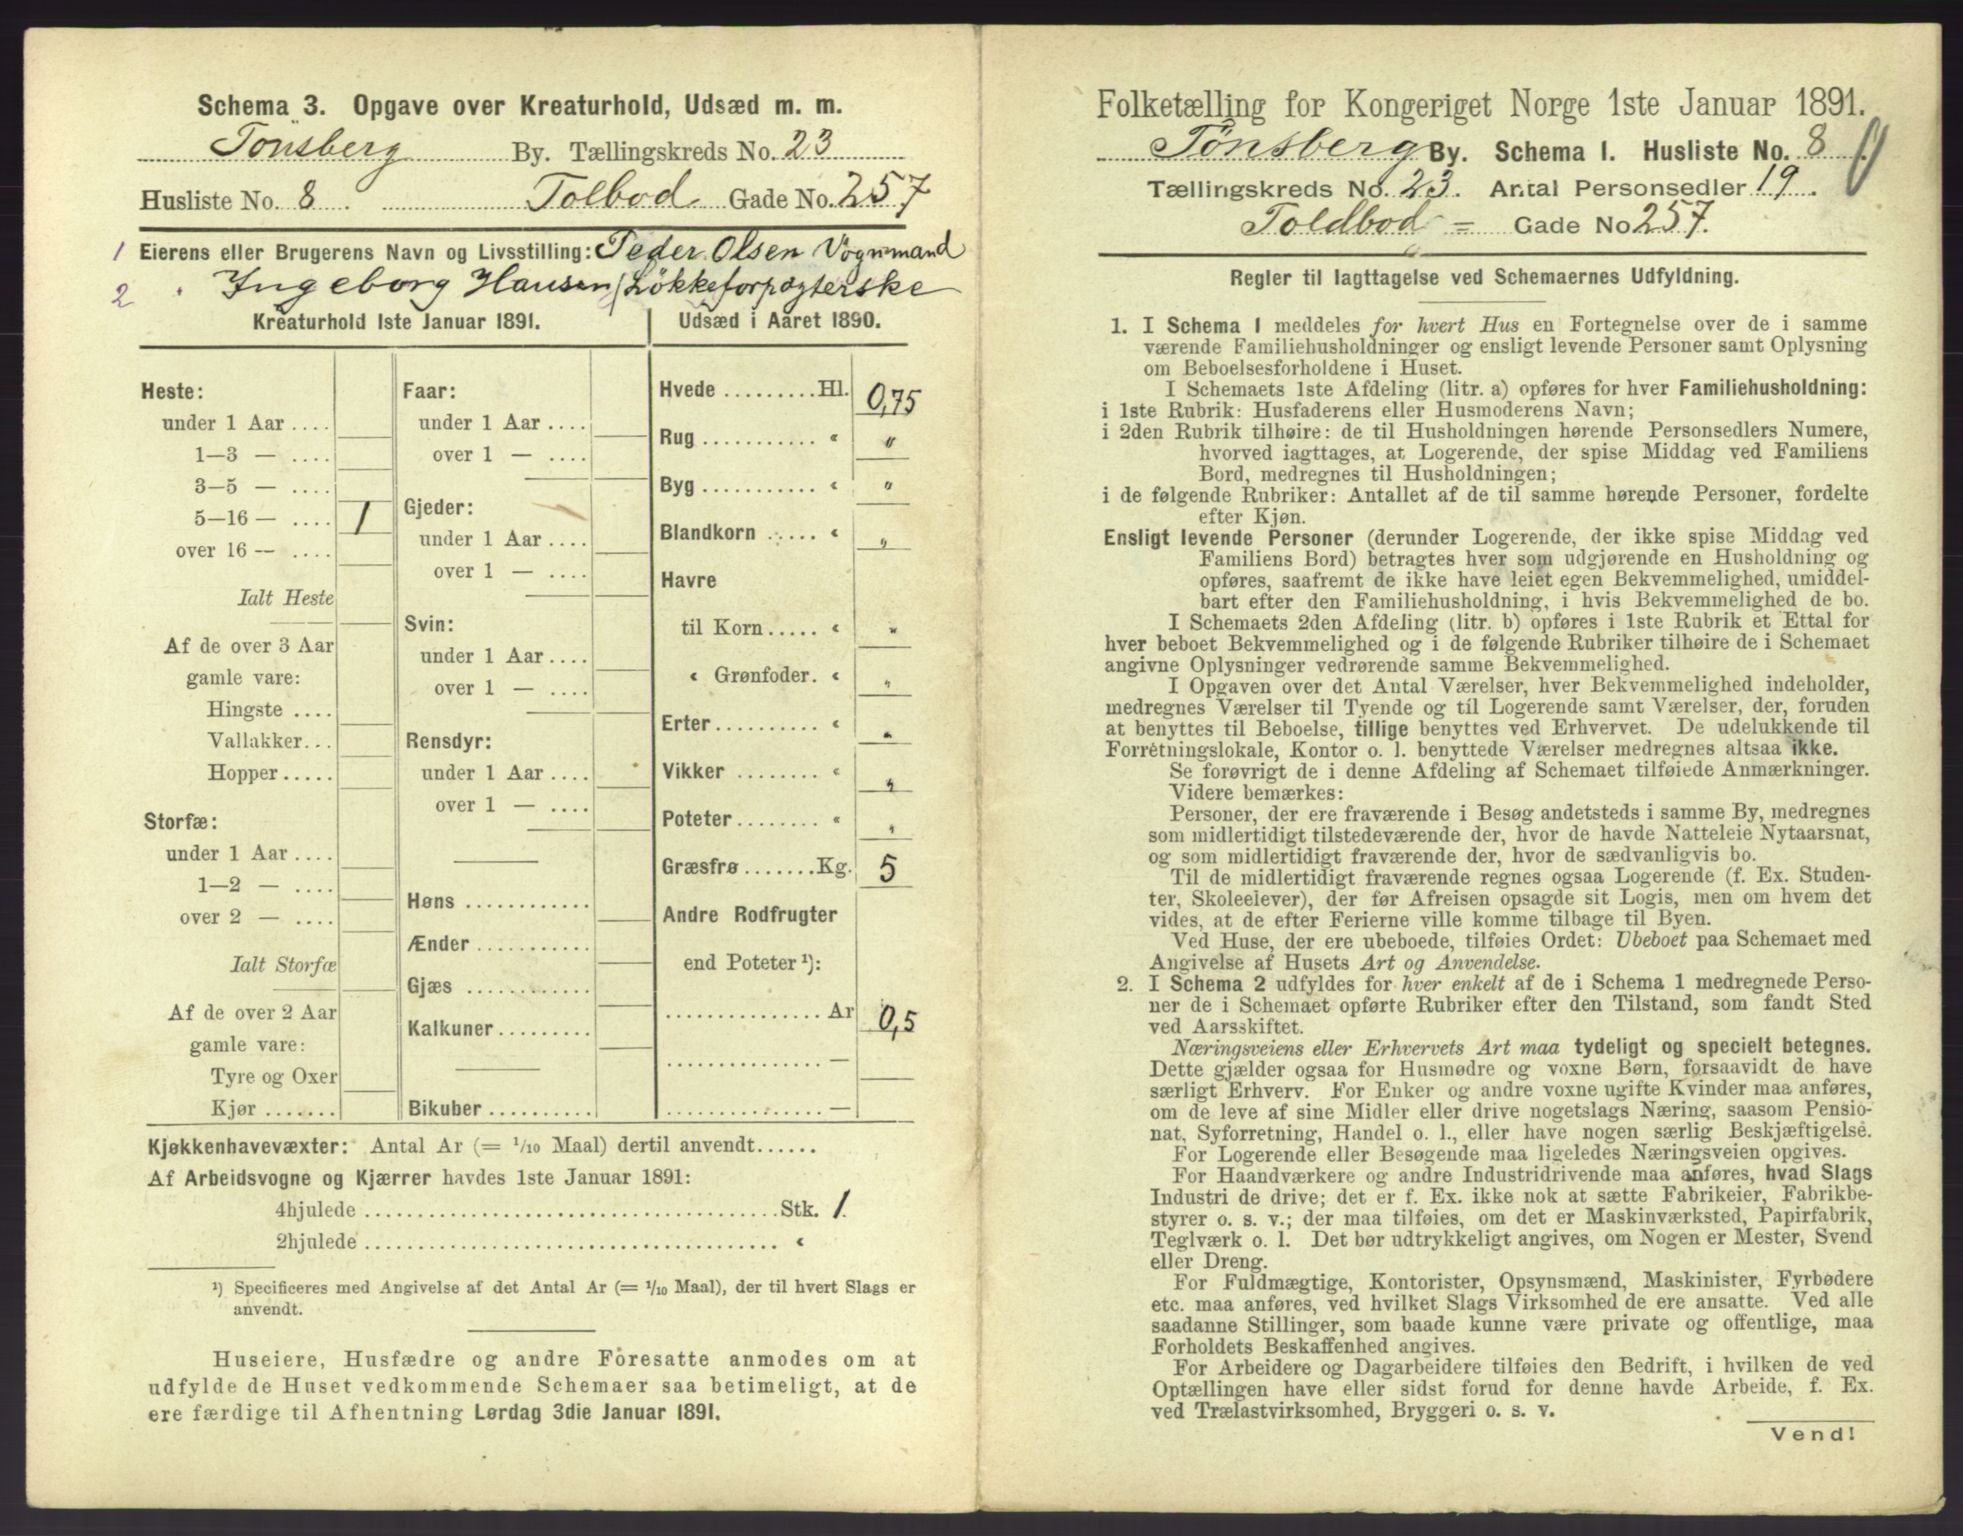 Schema 3. Opgave over Kreaturhold, Udsæd m. m.
Tønsberg By. Tællingskreds No. 23
Husliste No. 8. Tolbod Gade No. 257
1 Eierens eller Brugerens Navn og Livsstilling: Peder Olsen Vognmand
2 Ingeborg Hansen / Løkkeforpagterske
Kreaturhold 1ste Januar 1891.
Heste:
under 1 Aar ....
1—3 — ....
3—5 — ....
5—16 — .... 1
over 16 — ....
Ialt Heste
Af de over 3 Aar
gamle vare:
Hingste ....
Vallakker...
Hopper.....
Storfæ:
under 1 Aar ....
1—2 — ....
over 2 — ....
Ialt Storfæ
Af de over 2 Aar
gamle vare:
Tyre og Oxer
Kjør .......
Faar:
under 1 Aar ....
over 1 — ....
Gjeder:
under 1 Aar ....
over 1 — ....
Svin:
under 1 Aar ....
over 1 — ....
Rensdyr:
under 1 Aar ....
over 1 — ....
Høns ............
Ænder ...........
Gjæs ............
Kalkuner.........
Bikuber ..........
Udsæd i Aaret 1890.
Hvede .........Hl. 0,75
Rug ........... « "
Byg ........... « "
Blandkorn ..... « "
Havre
til Korn..... « "
« Grønfoder. « "
Erter........... « "
Vikker ........ « "
Poteter........ « "
Græsfrø.......Kg. 5
Andre Rodfrugter
end Poteter ¹):
...............Ar 0,5
...............—
...............—
Kjøkkenhavevæxter: Antal Ar (= 1/10 Maal) dertil anvendt......
Af Arbeidsvogne og Kjærrer havdes 1ste Januar 1891:
4hjulede ......................................Stk. 1.
2hjulede ...................................... «
¹) Specificeres med Angivelse af det Antal Ar (= 1/10 Maal), der til hvert Slags er
anvendt.
Huseiere, Husfædre og andre Foresatte anmodes om at
udfylde de Huset vedkommende Schemaer saa betimeligt, at de
ere færdige til Afhentning Lørdag 3die Januar 1891.
Folketælling for Kongeriget Norge 1ste Januar 1891.
Tønsberg By. Schema 1. Husliste No. 8.
Tællingskreds No. 23. Antal Personsedler 19.
Toldbod = Gade No 257.
Regler til Iagttagelse ved Schemaernes Udfyldning.
1. I Schema 1 meddeles for hvert Hus en Fortegnelse over de i samme
værende Familiehusholdninger og ensligt levende Personer samt Oplysning
om Beboelsesforholdene i Huset.
I Schemaets 1ste Afdeling (litr. a) opføres for hver Familiehusholdning:
i 1ste Rubrik: Husfaderens eller Husmoderens Navn;
i 2den Rubrik tilhøire: de til Husholdningen hørende Personsedlers Numere,
hvorved iagttages, at Logerende, der spise Middag ved Familiens
Bord, medregnes til Husholdningen;
i de følgende Rubriker: Antallet af de til samme hørende Personer, fordelte
efter Kjøn.
Ensligt levende Personer (derunder Logerende, der ikke spise Middag ved
Familiens Bord) betragtes hver som udgjørende en Husholdning og
opføres, saafremt de ikke have leiet egen Bekvemmelighed, umiddel-
bart efter den Familiehusholdning, i hvis Bekvemmelighed de bo.
I Schemaets 2den Afdeling (litr. b) opføres i 1ste Rubrik et Ettal for
hver beboet Bekvemmelighed og i de følgende Rubriker tilhøire de i Schemaet
angivne Oplysninger vedrørende samme Bekvemmelighed.
I Opgaven over det Antal Værelser, hver Bekvemmelighed indeholder,
medregnes Værelser til Tyende og til Logerende samt Værelser, der, foruden
at benyttes til Beboelse, tillige benyttes ved Erhvervet. De udelukkende til
Forretningslokale, Kontor o. l. benyttede Værelser medregnes altsaa ikke.
Se forøvrigt de i denne Afdeling af Schemaet tilføiede Anmærkninger.
Videre bemærkes:
Personer, der ere fraværende i Besøg andetsteds i samme By, medregnes
som midlertidigt tilstedeværende der, hvor de havde Natteleie Nytaarsnat,
og som midlertidigt fraværende der, hvor de sædvanligvis bo.
Til de midlertidigt fraværende regnes ogsaa Logerende (f. Ex. Studen-
ter, Skoleelever), der før Afreisen opsagde sit Logis, men om hvem det
vides, at de efter Ferierne ville komme tilbage til Byen.
Ved Huse, der ere ubeboede, tilføies Ordet: Ubeboet paa Schemaet med
Angivelse af Husets Art og Anvendelse.
2. I Schema 2 udfyldes for hver enkelt af de i Schema 1 medregnede Perso-
ner de i Schemaet opførte Rubriker efter den Tilstand, som fandt Sted
ved Aarsskiftet.
Næringsveiens eller Erhvervets Art maa tydeligt og specielt betegnes.
Dette gjælder ogsaa for Husmødre og voxne Børn, forsaavidt de have
særligt Erhverv. For Enker og andre voxne ugifte Kvinder maa anføres,
om de leve af sine Midler eller drive nogetslags Næring, saasom Pensio-
nat, Syforretning, Handel o. l., eller have nogen særlig Beskjæftigelse.
For Logerende eller Besøgende maa ligeledes Næringsveien opgives.
For Haandværkere og andre Industridrivende maa anføres, hvad Slags
Industri de drive; det er f. Ex. ikke nok at sætte Fabrikeier, Fabrikbe-
styrer o. s. v.; der maa tilføies, om det er Maskinværksted, Papirfabrik,
Teglværk o. l. Det bør udtrykkeligt angives, om Nogen er Mester, Svend
eller Dreng.
For Fuldmægtige, Kontorister, Opsynsmænd, Maskinister, Fyrbødere
etc. maa anføres, ved hvilket Slags Virksomhed de ere ansatte. Ved alle
saadanne Stillinger, som baade kunne være private og offentlige, maa
Forholdets Beskaffenhed angives.
For Arbeidere og Dagarbeidere tilføies den Bedrift, i hvilken de ved
Optællingen have eller sidst forud for denne havde Arbeide, f. Ex.
ved Trælastvirksomhed, Bryggeri o. s. v.
Vend!